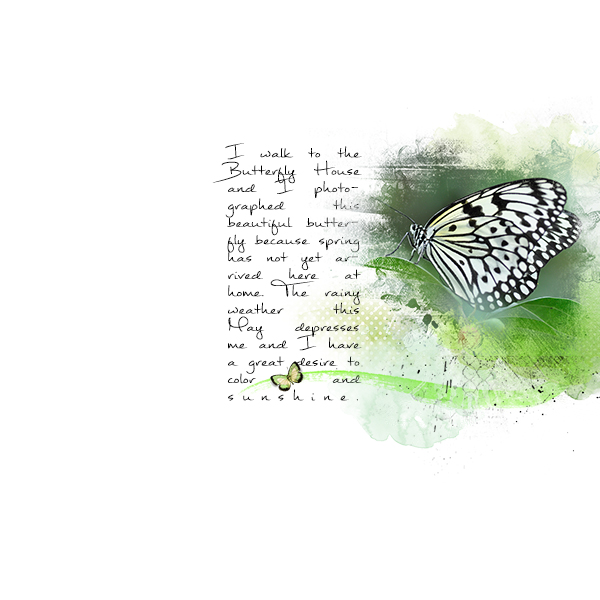 I walk to the
Butterfly House
and I photo-
graphed this
beautiful butter-
fly because spring
has not yet ar-
rived here at
home. The rainy
weather this
May depresses
me and I have
a great desire to
color and
sunshine.